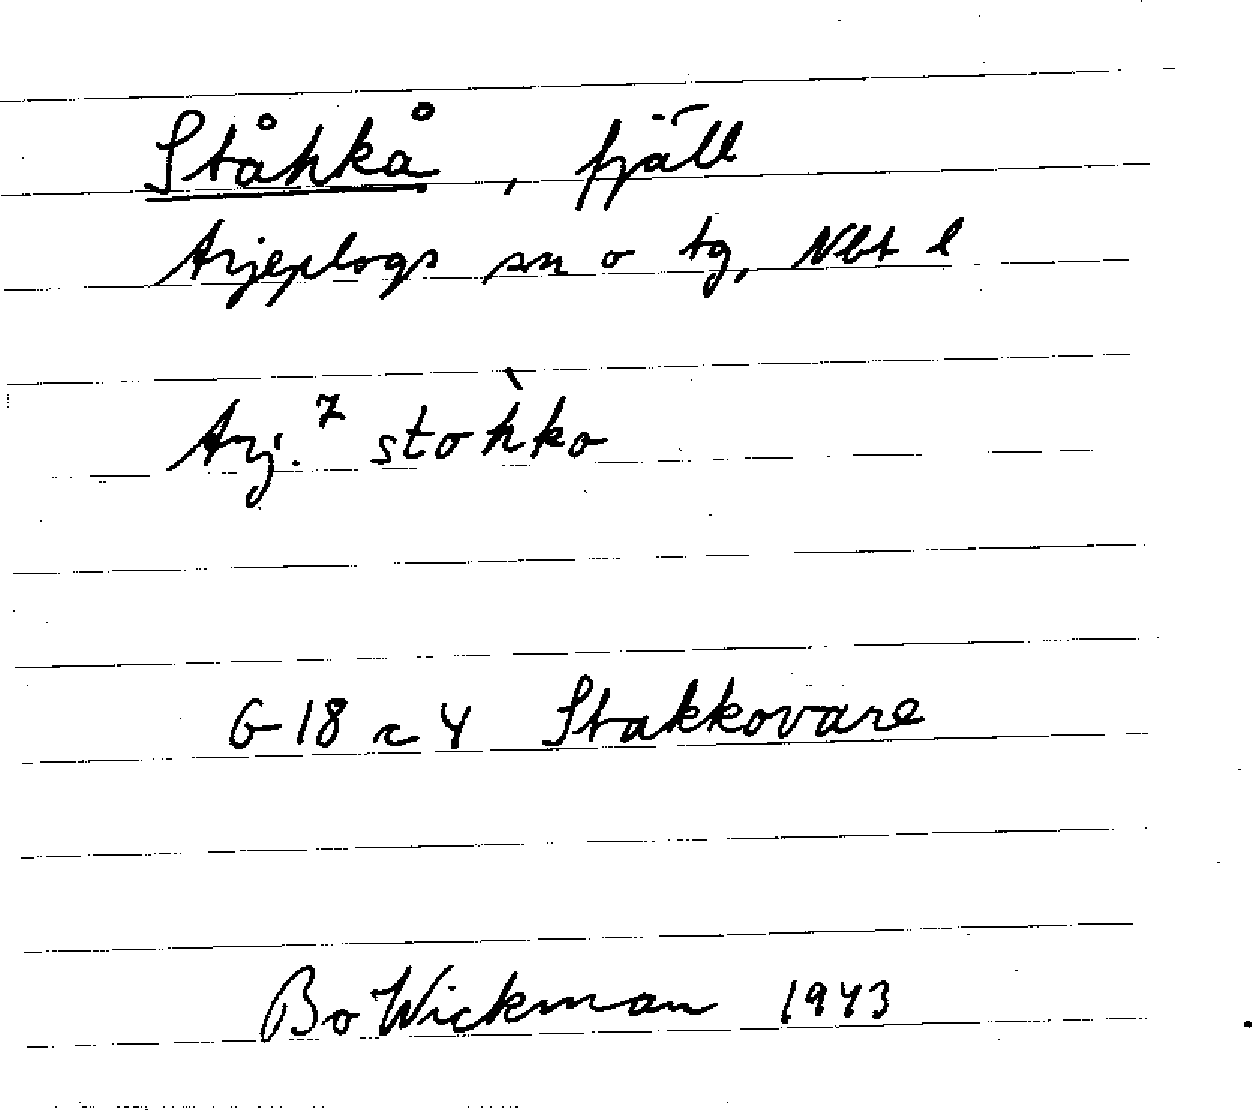 Ståhkå, fjäll
Arjeplogs sn o tg, Nbt l
Arj.⁷ stoh̀ko
G-18 c 4 Stakkovare
Bo Wickman 1943